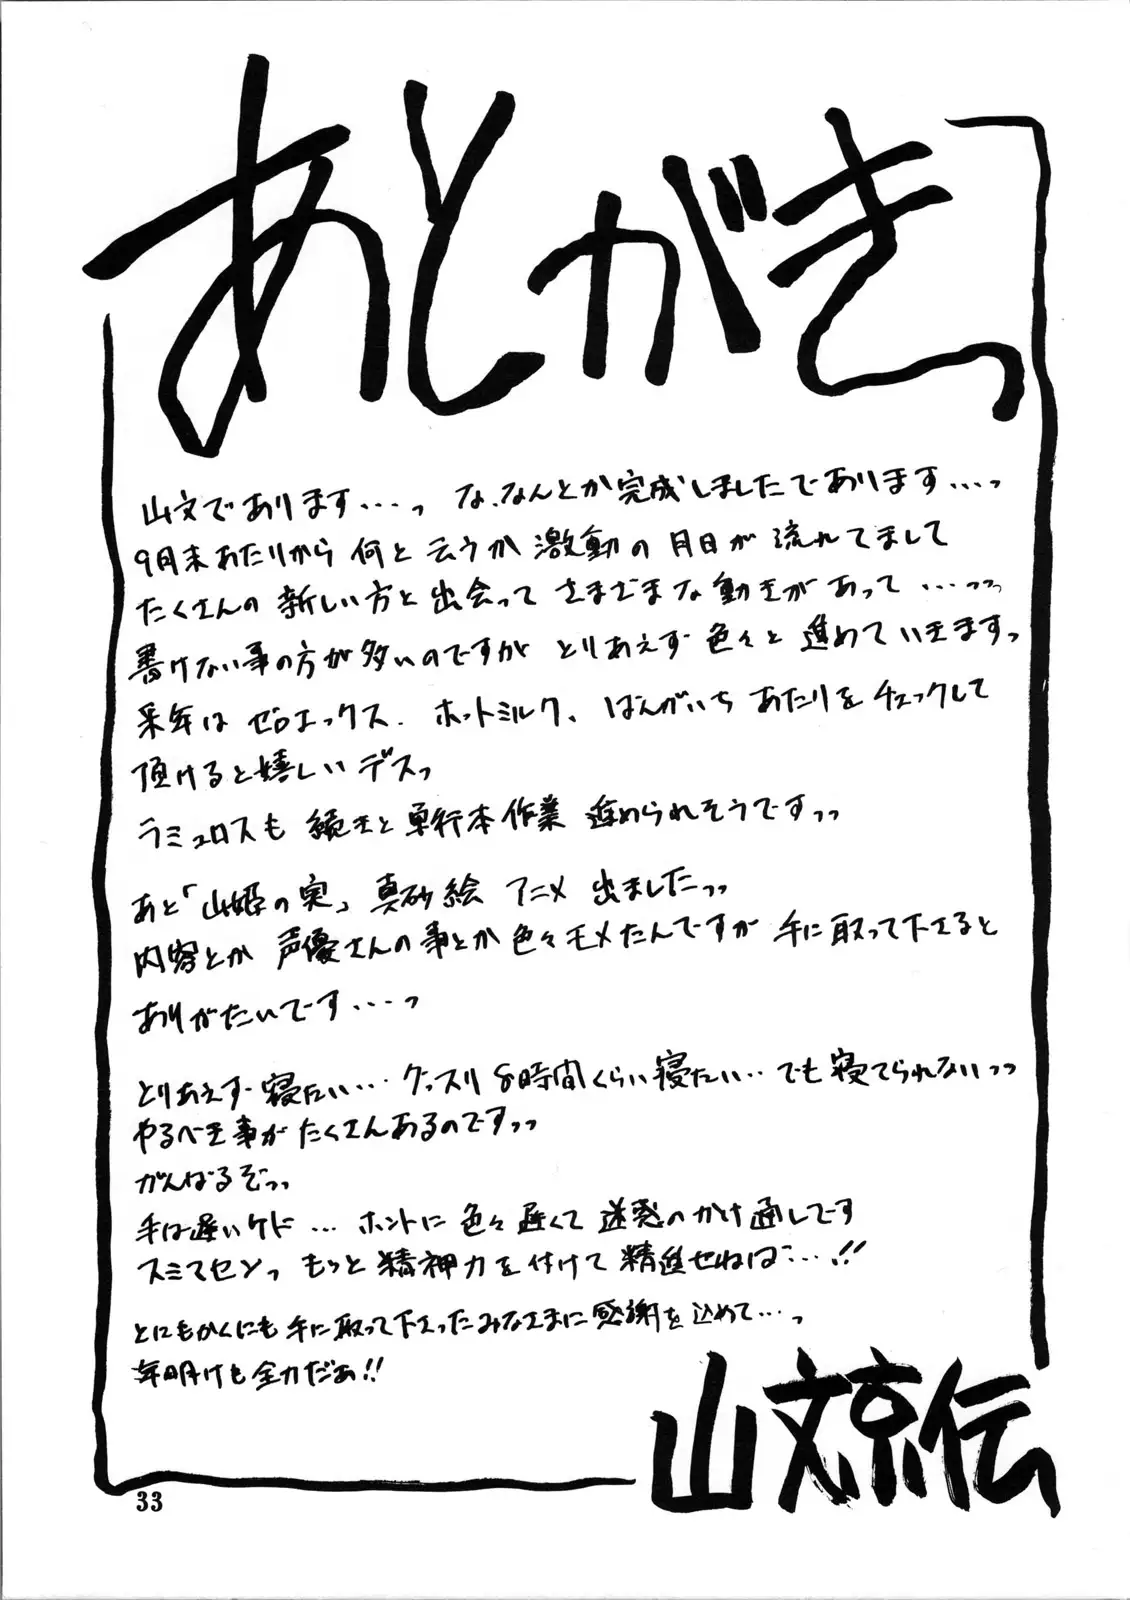 あとがきっ
山文であります・・・・っ な、なんとか完成しましたであります・・・・っ
9月末あたりから 何と云うか 激動の月日が 流れてまして
たくさんの 新しい方と 出会って さまざまな動きがあって ・・・・っっっ
書けない事の方が多いのですが とりあえず 色々と 進めていきますっ
来年は ゼロエックス、ホットミルク、ばんがいち あたりを チェックして
頂けると嬉しいデスっ
ラミュロスも 続きと 単行本作業 進められそうですっっ
あと「山姫の実」真砂絵 アニメ 出ましたっっ
内容とか 声優さんの事とか 色々モメたんですが 手に取って下さると
ありがたいです・・・・っ
とりあえず 寝たい・・・ グッスリ 8時間くらい寝たい・・・でも 寝てられないっっ
やるべき事が たくさんあるのですっっ
がんばるぞっっ
手は遅いケド ・・・ ホントに 色々 遅くて 迷惑のかけ通しです
スミマセンっ もっと 精神力を付けて 精進せねば・・・・!!
とにもかくにも 手に取って下さったみなさまに 感謝を込めて・・・・っ
年明けも 全力だぁ!!
山文京伝
33